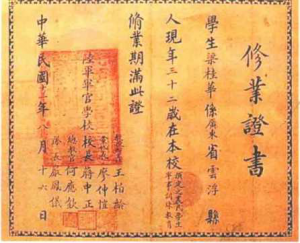 修業證書
學生梁桂華係廣東省雲浮縣
人現年三十二歲在本校
脩業期滿此證
王柏齡
廖仲愷
陸軍軍官學校校長蔣中正
總教官何應欽
隊長 鳳儀
中華民國十三年八月十六日